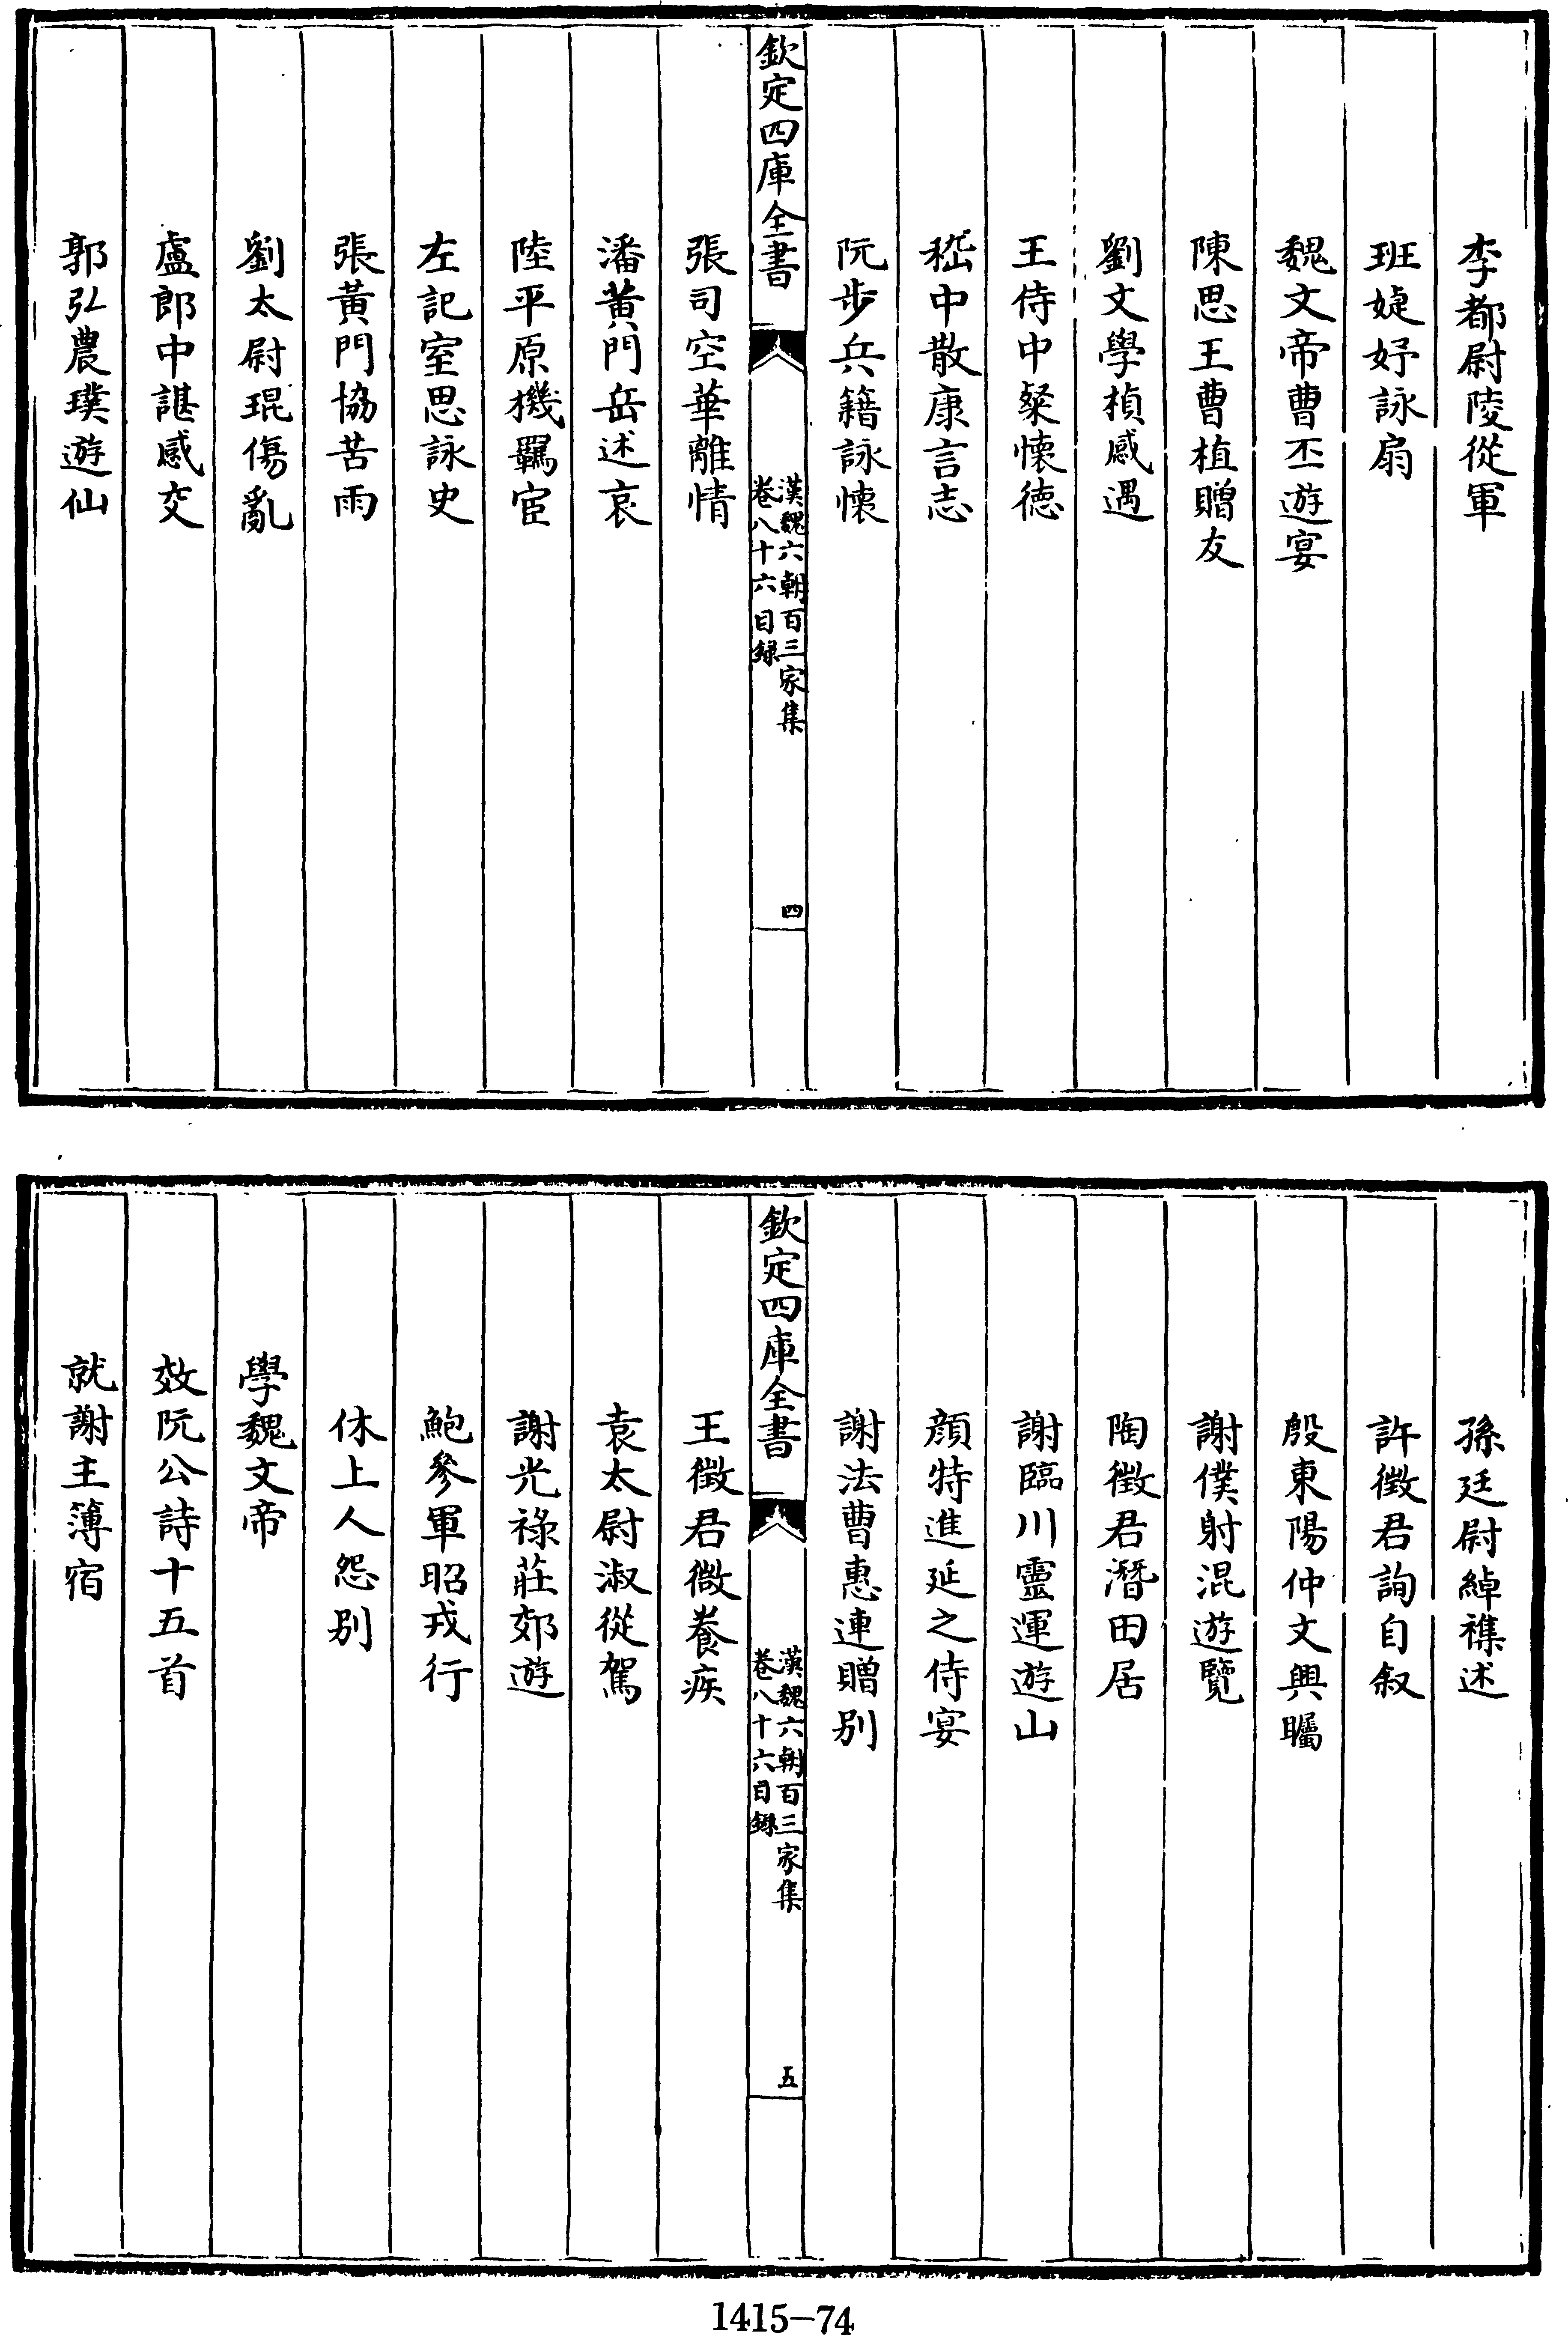 李都尉陵從軍
班婕妤詠扇
魏文帝曹丕遊宴
陳思王曹植贈友
劉文學楨感遇
王侍中粲懷德
嵇中散康言志
阮步兵籍詠懷
欽定四庫全書
漢魏六朝百三家集
卷八十六目録
四
張司空華離情
潘黃門岳述哀
陸平原機羈宦
左記室思詠史
張黃門協苦雨
劉太尉琨傷亂
盧郎中諶感交
郭弘農璞遊仙
孫廷尉綽襍述
許徵君詢自叙
殷東陽仲文興矚
謝僕射混遊覽
陶徵君潛田居
謝臨川靈運遊山
顏特進延之侍宴
謝法曹惠連贈别
欽定四庫全書
漢魏六朝百三家集
卷八十六目録
五
王徵君微養疾
袁太尉淑從駕
謝光祿莊郊遊
鮑參軍昭戎行
休上人怨别
學魏文帝
效阮公詩十五首
就謝主簿宿
1415-74